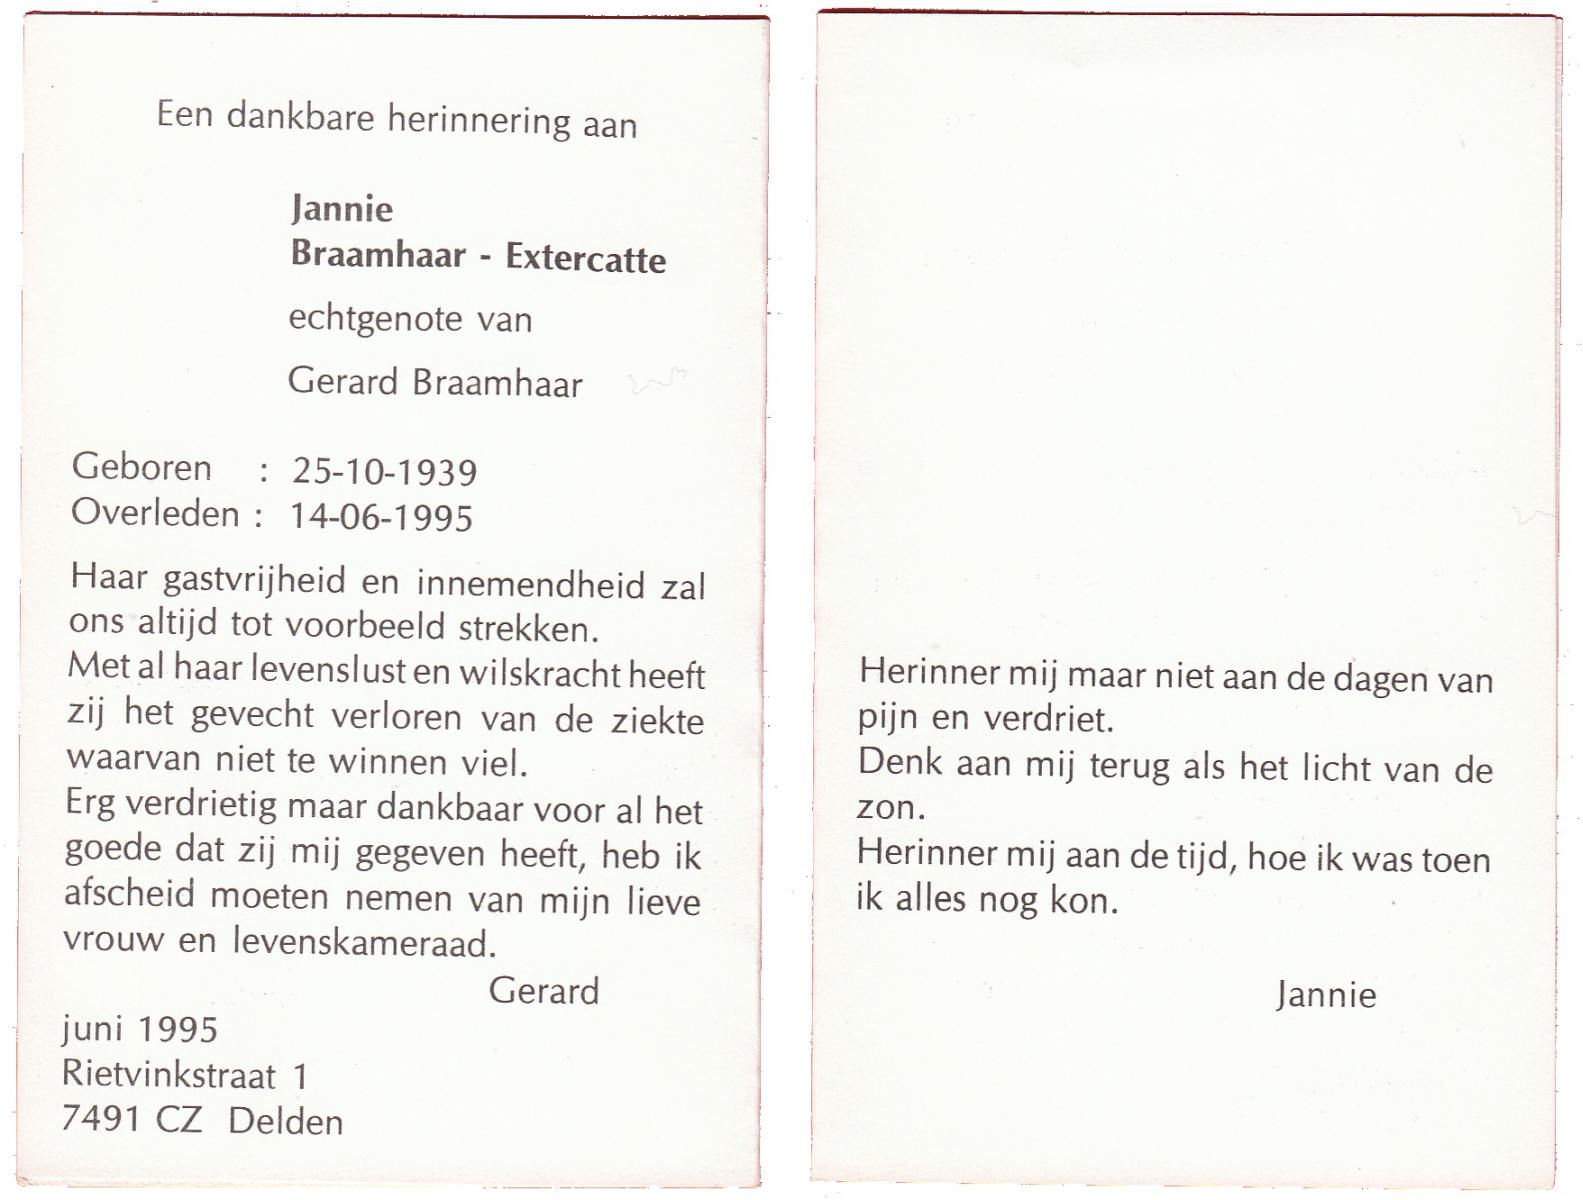 Een dankbare herinnering aan
Jannie
Braamhaar - Extercatte
echtgenote van
Gerard Braamhaar
Geboren : 25-10-1939
Overleden : 14-06-1995
Haar gastvrijheid en innemendheid zal
ons altijd tot voorbeeld strekken.
Met al haar levenslust en wilskracht heeft
zij het gevecht verloren van de ziekte
waarvan niet te winnen viel.
Erg verdrietig maar dankbaar voor al het
goede dat zij mij gegeven heeft, heb ik
afscheid moeten nemen van mijn lieve
vrouw en levenskameraad.
Gerard
juni 1995
Rietvinkstraat 1
7491 CZ Delden
Herinner mij maar niet aan de dagen van
pijn en verdriet.
Denk aan mij terug als het licht van de
zon.
Herinner mij aan de tijd, hoe ik was toen
ik alles nog kon.
Jannie